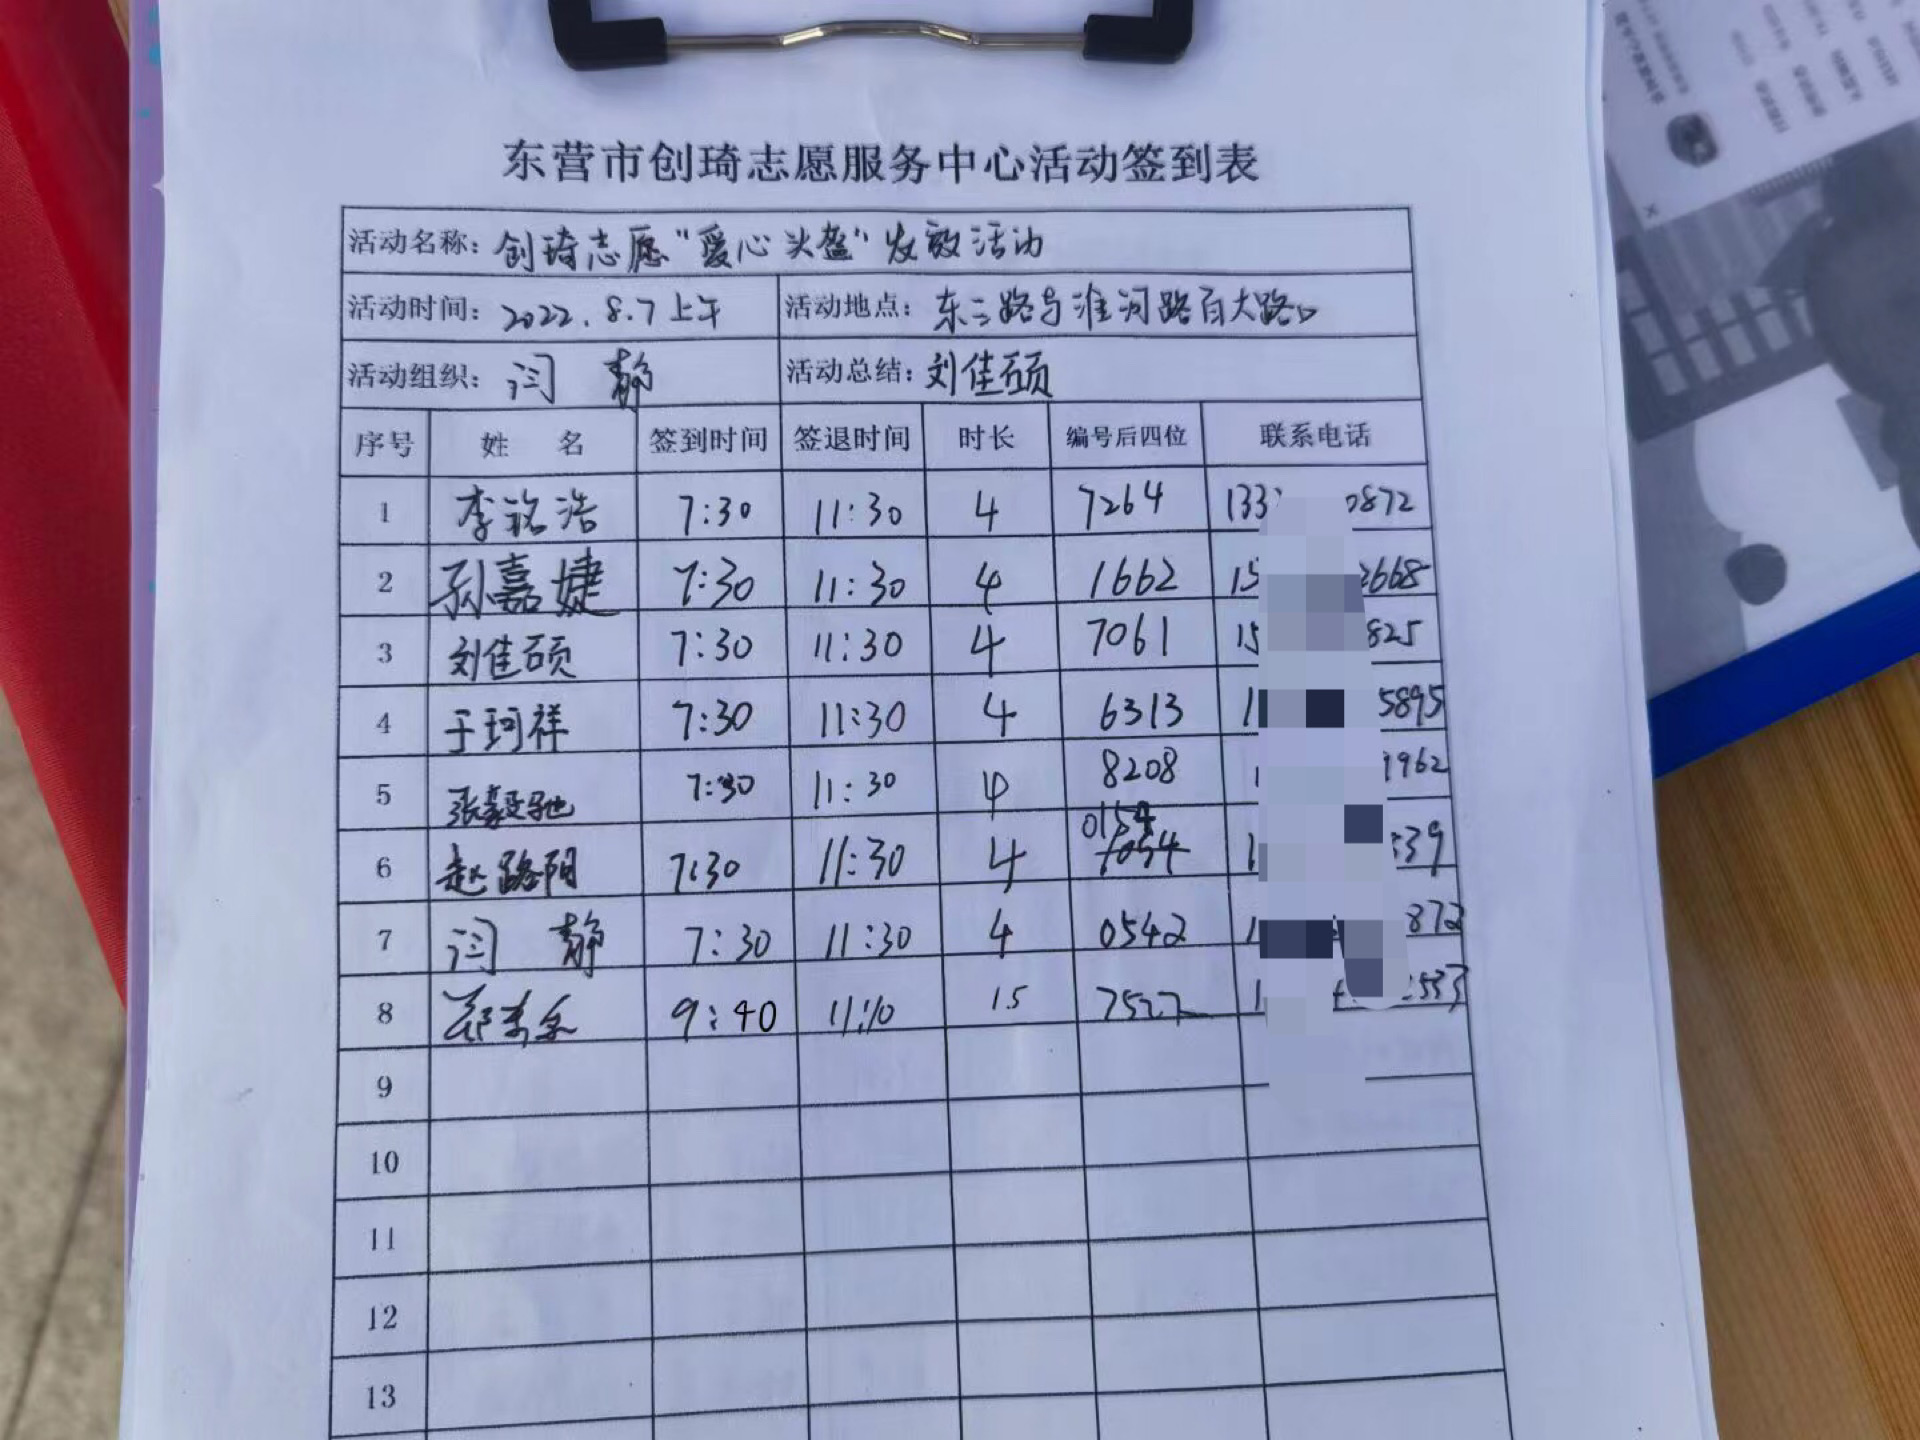 东营市创琦志愿服务中心活动签到表
活动名称: 创琦志愿“爱心头盔”发放活动
活动时间: 2022.8.7上午 活动地点: 东二路与淮河路百大路口
活动组织: 闫静 活动总结: 刘佳硕
序号 姓名 签到时间 签退时间 时长 编号后四位 联系电话
1 李铭浩 7:30 11:30 4 7264 133 0872
2 孙嘉婕 7:30 11:30 4 1662 15 2668
3 刘佳硕 7:30 11:30 4 7061 15 825
4 于珂祥 7:30 11:30 4 6313 1 5895
5 张毅驰 7:30 11:30 4 8208 1 1962
6 赵路阳 7:30 11:30 4 0154 1 539
7 闫静 7:30 11:30 4 0542 1 872
8 9:40 11:10 15 7527 1 2533
9
10
11
12
13